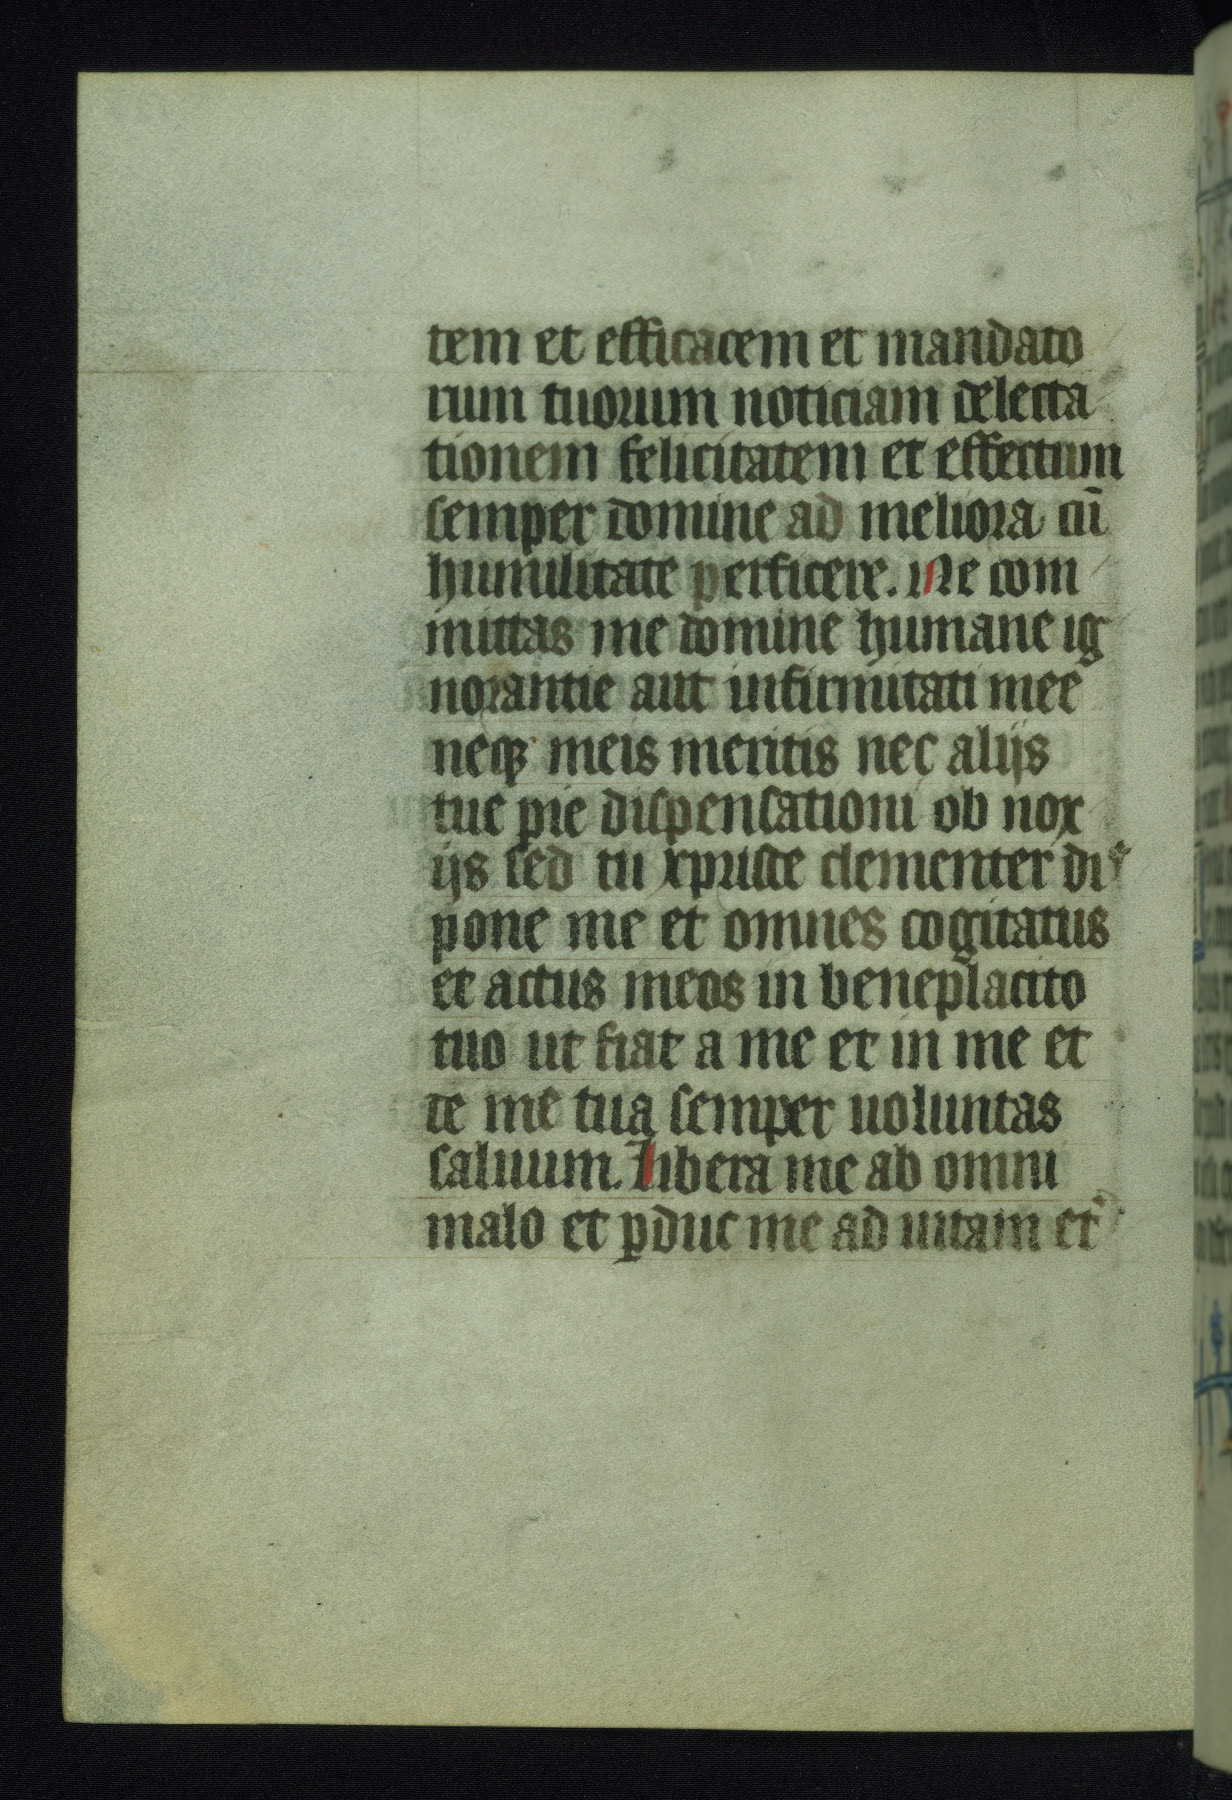 tem et efficacem et mandato
rum tuorum noticiam delecta
tionem felicitatem et effectum
semper domine ad meliora cū
humilitate perficere. Ne com
mittas me domine humane ig
norantie aut infirmitati mee
neqꝫ meis meritis nec alijs
tue pie dispensationi ob nox
ijs sed tu xpriste clementer dis
pone me et omnes cogitatus
et actus meos in beneplacito
tuo ut fiat a me et in me et
de me tua semper uoluntas
saluum. Libera me ab omni
malo et ꝑduc me ad uitam et